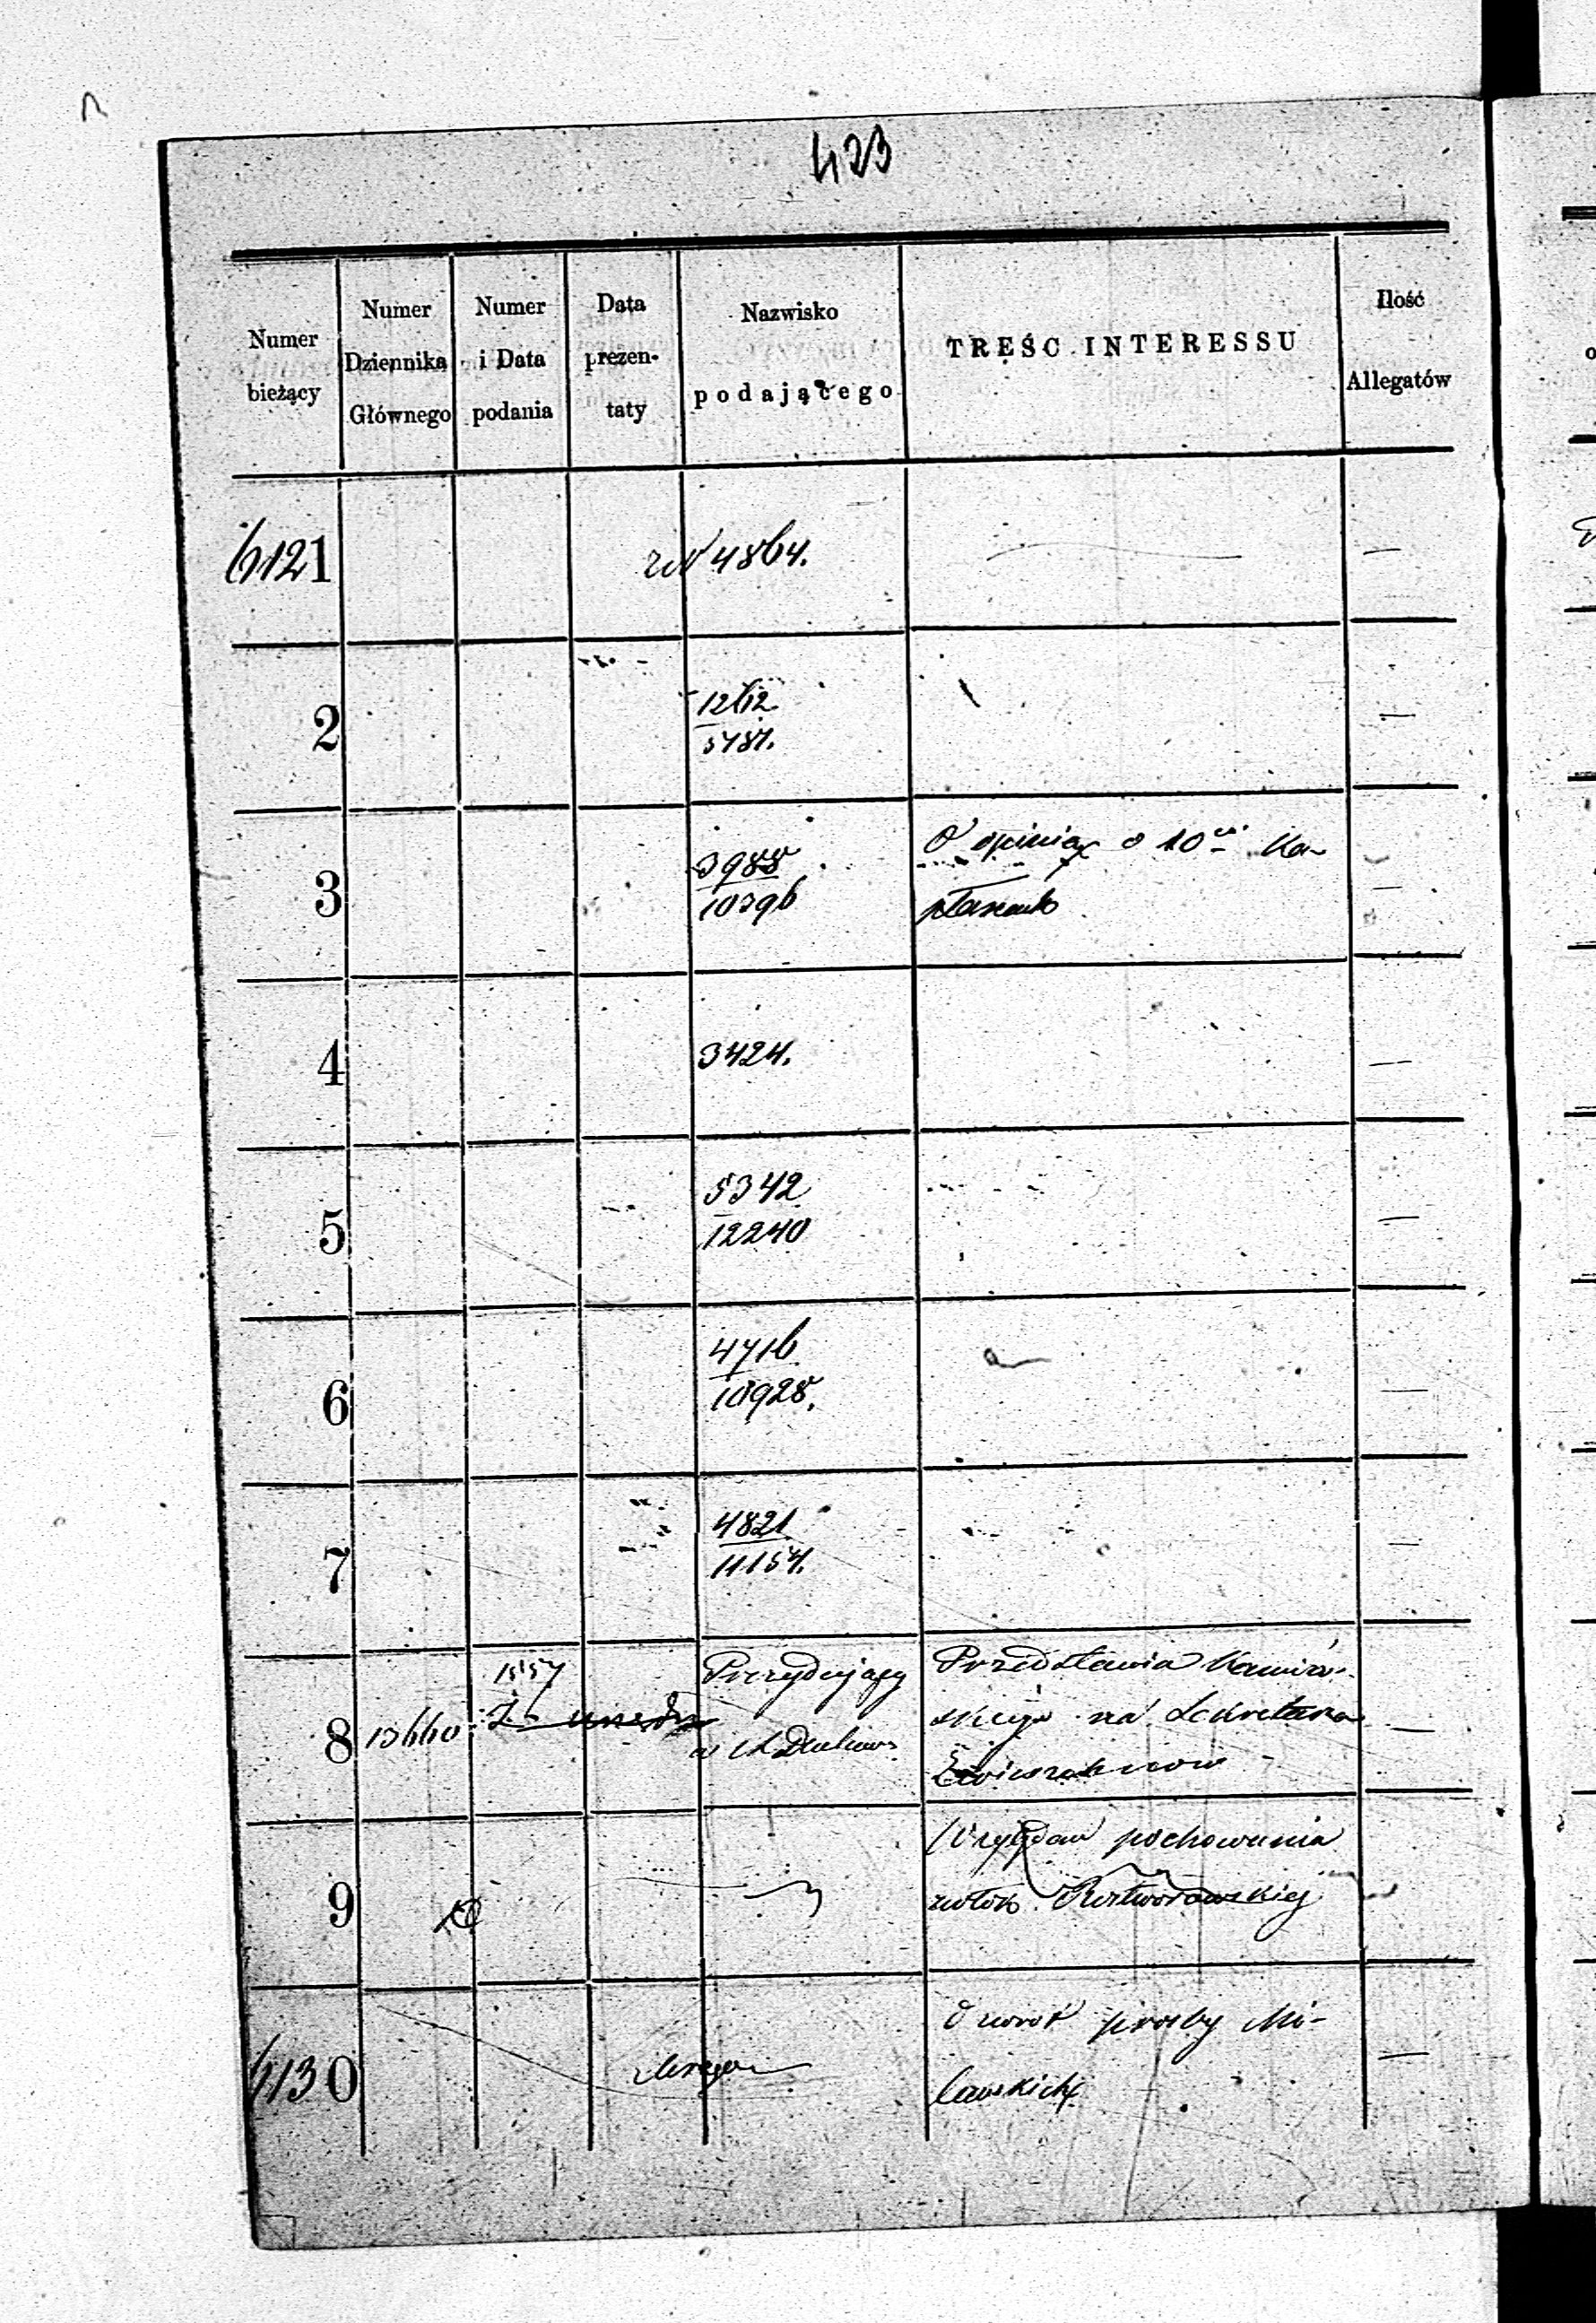 423
Numer bieżący
Numer Dziennika Głównego
Numer i Data podania
Data prezentaty
Nazwisko podającego
TREŚĆ INTERESSU
Ilość Allegatów
6121 4864. —
2 1262 —
5787.
3 3988 O opinią o 10 Ka- —
10396 płanach
4 3424. —
5 5342 —
12240
6 4716 —
10928.
7 4821 —
11154.
8 13660 1557 Prezydujący Przedstawia Kamiń-
skiego na Sekretarza —
9 Względem pochowania
zwłok Rostworowskiej
6130 O zwrot prośby Mi- —
lawskich